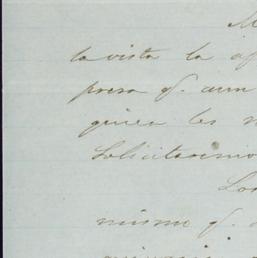 M
la vista la of
presa q. aun
quien les n
Solicitaremos
Los
mismo q.